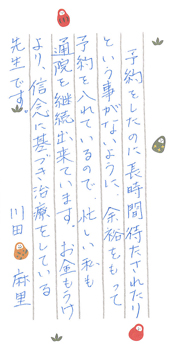 予約をしたのに長時間待たされたり
という事がないように、余裕をもって
予約を入れているので、忙しい私も
通院を継続出来ています。お金もうけ
より、信念に基づき治療をしている
先生です。
川田 麻里